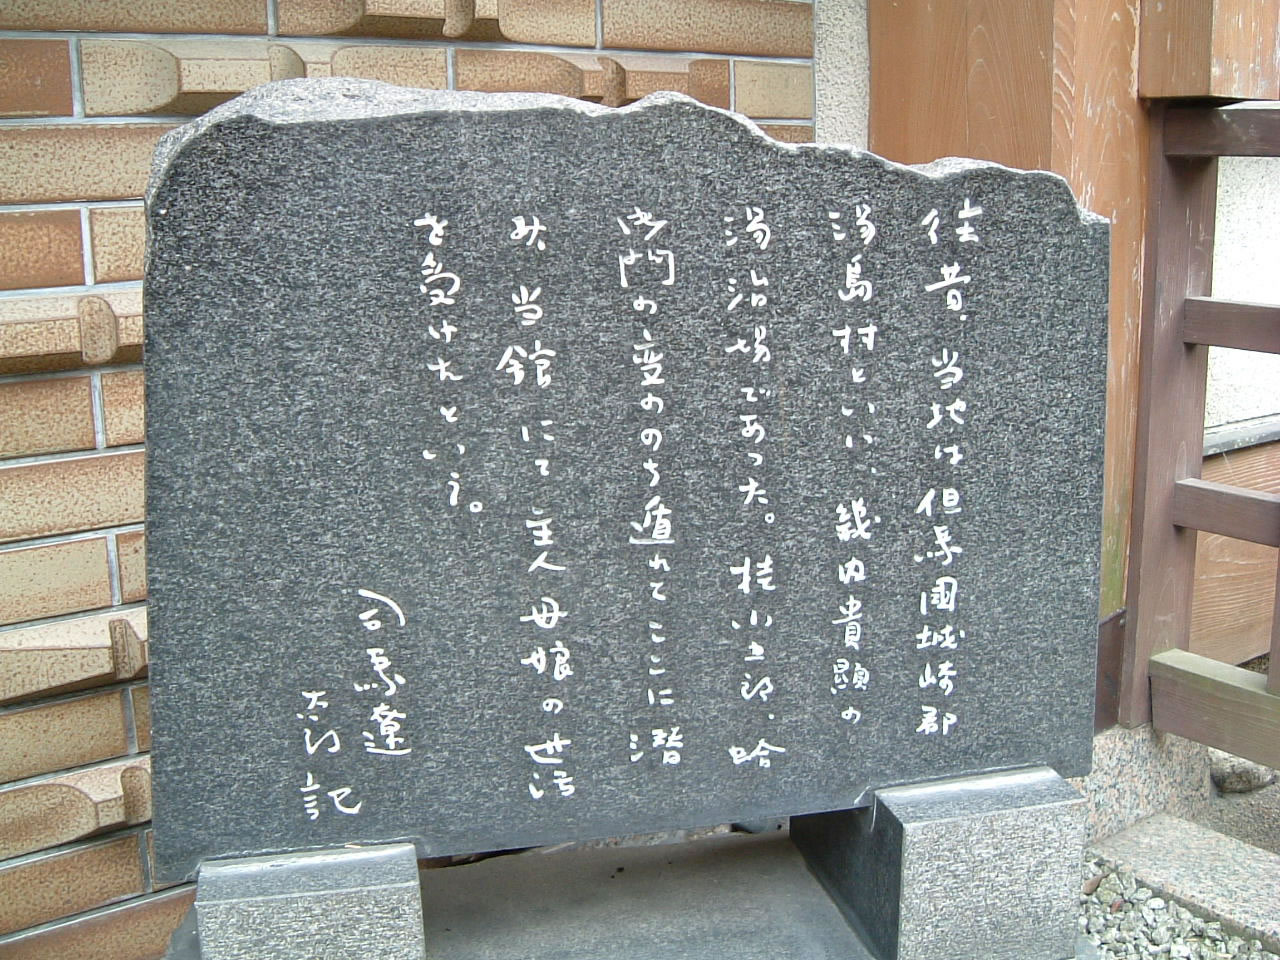 往昔、当地は但馬國城崎郡
湯島村といい、畿内貴顕の
湯治場であった。桂小五郎、蛤
御門の変ののち遁れてここに潜
み、当館にて主人母娘の世話
を受けたという。
司馬遼
太郎 記